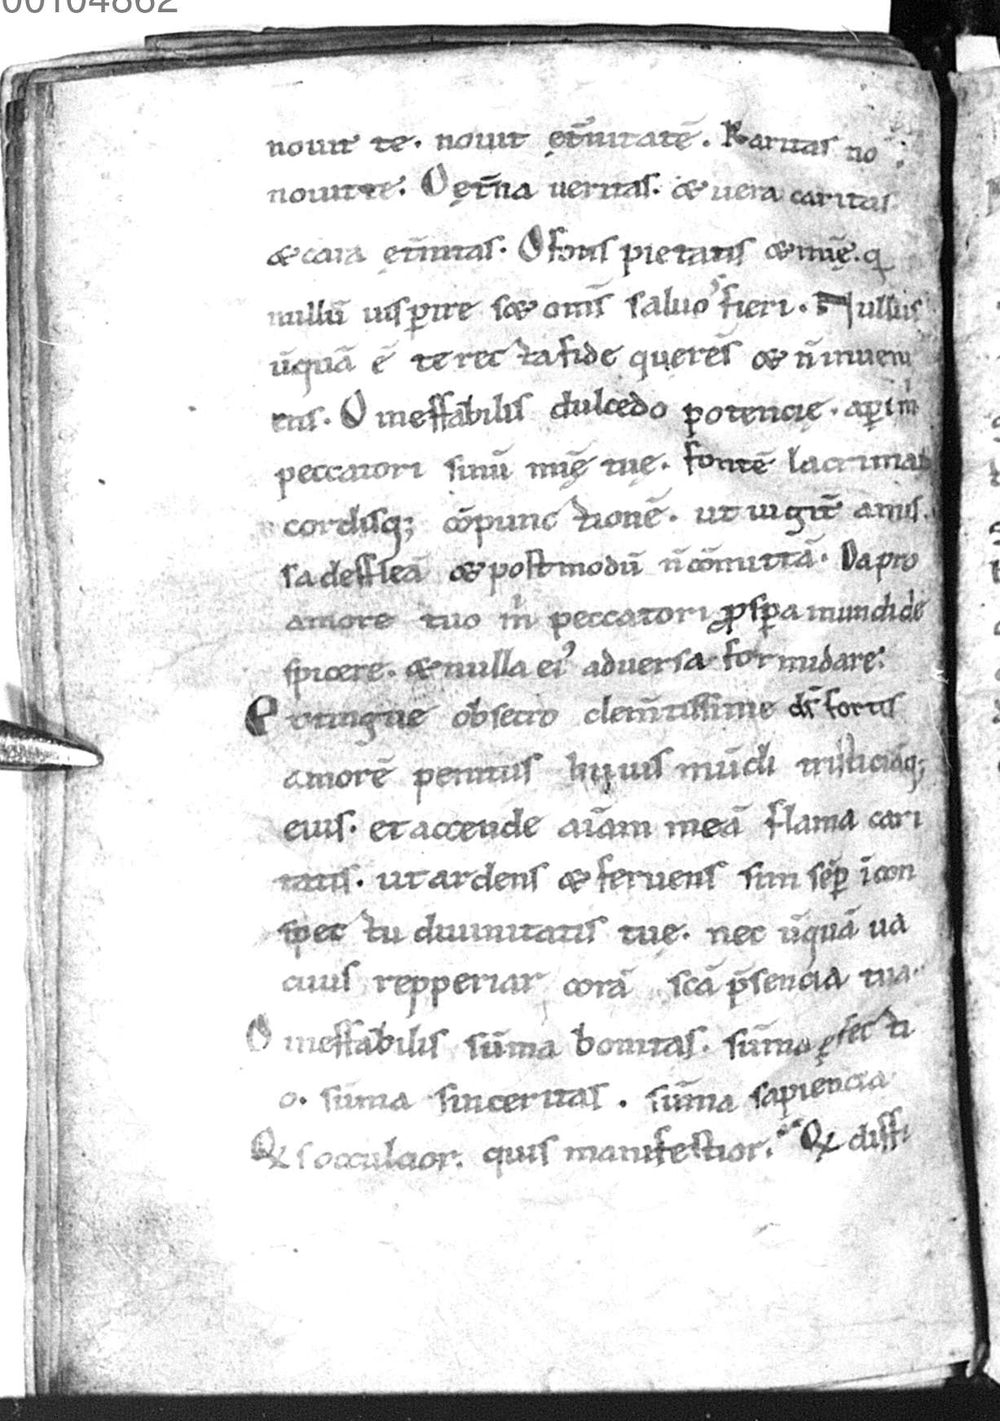 00104862
nouit te. nouit et̄nitatē. Karitas no
nouit te. O ęt̄na ueritas. & uera caritas
& cara ęt̄nitas. O fons pietatis & mīę. q
nullū uis ꝑire s& om̄s saluos fieri. Nullus
ūquā ē te recta fide querēs & n̄ inueni
ens. O ineffabilis dulcedo potencie. aꝑi m
peccatori sinū mīę tuę. fontē lacrimaꝝ
cordisq; cōpunctionē. ut iugit̄ amis
sa defleā & postmodū n̄ cōmittā. Da pro
amore tuo m peccatori ꝓsꝑa mundi de
spicere. & nulla ei aduersa formidare.
Extingue obsecro clem̄tissime ds̄ fortis
amorē penitus huius mūdi
eius. et accende aīam meā flama cari
tatis. ut ardens & feruens sim sēꝑ ī con
spectu diuinitatis tuę. nec ūquā ua
cuus repperiar corā scā p̄sencia tua.
O ineffabilis sūma bonitas. sūma ꝑfecti
o. sūma sinceritas. sūma sapiencia
Qis occulcior. quis manifestior. Q diffi